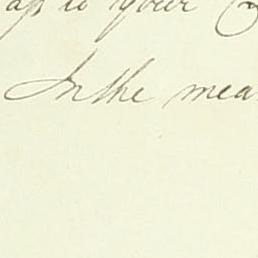 to your
In the mea